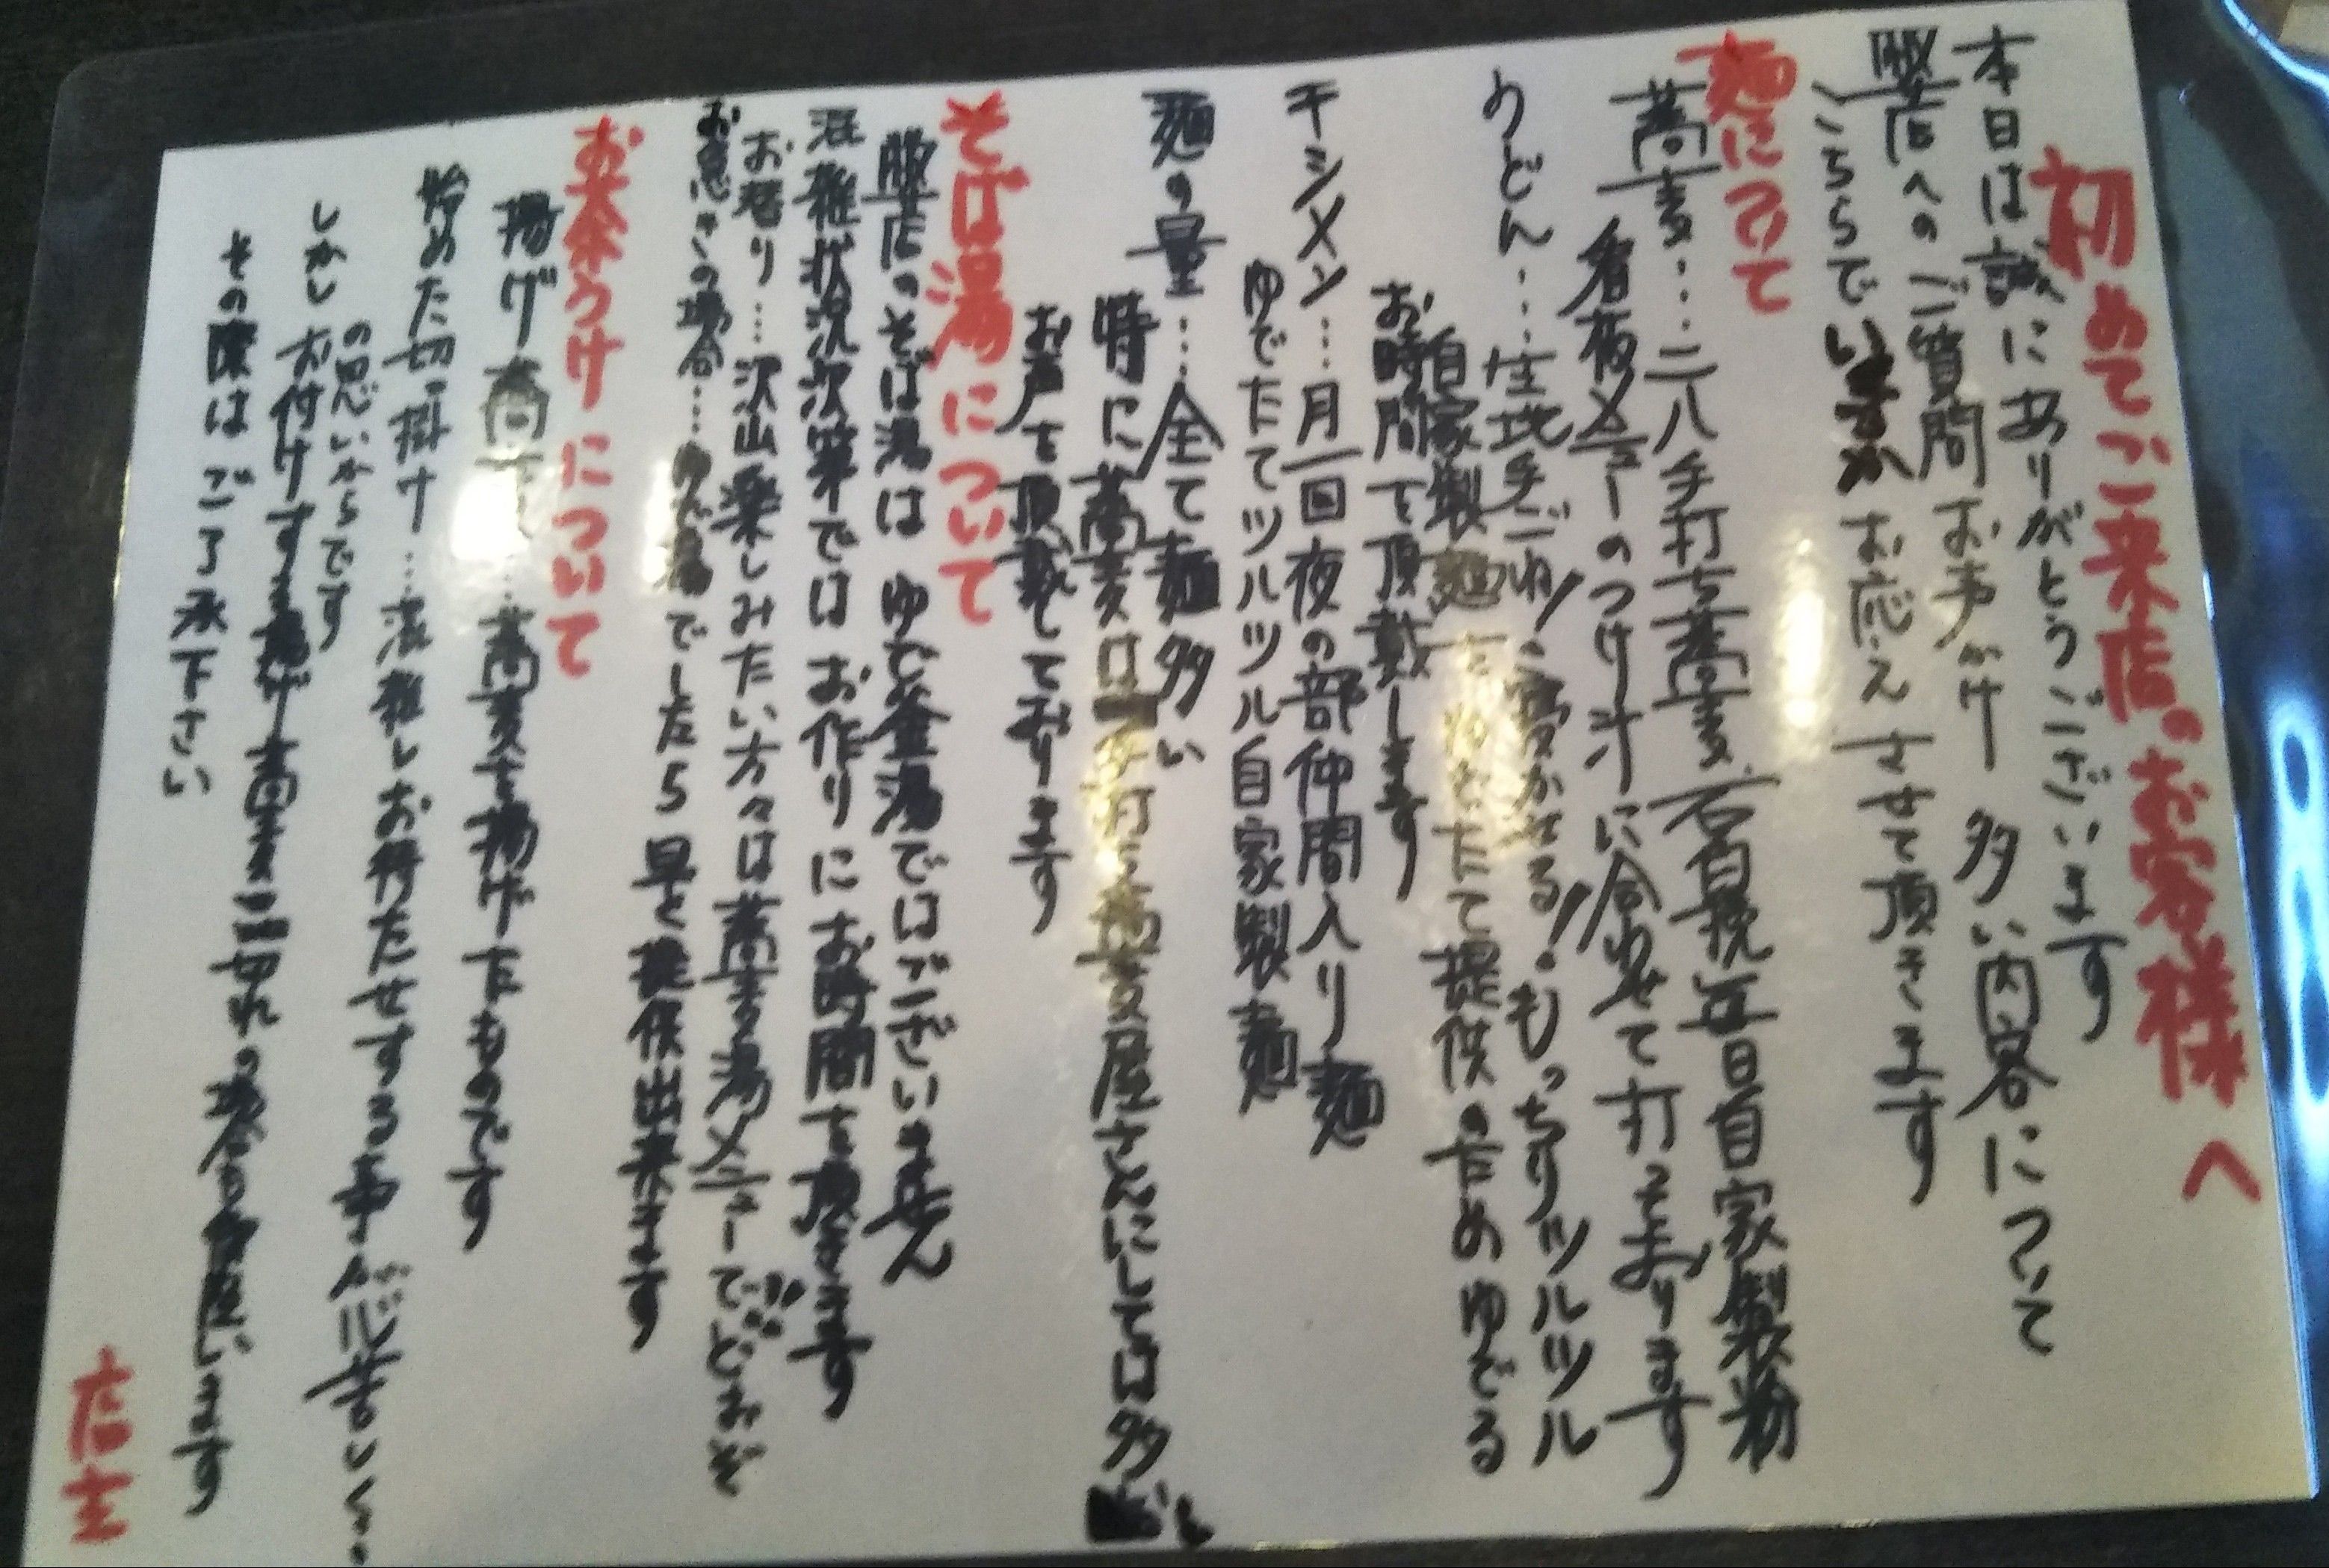 初めてご来店のお客様へ
本日は誠にありがとうございます
豚笠店へのご質問お声がけ多い内容について
こちらでいますがお応えさせて頂きます
麺について
蕎麦…二八手打ち蕎麦 石臼挽 毎日自家製粉
看板メニューのつけ汁に合わせて打っております
うどん…生地手ごね!寝かせる!もっちりツルツル
自家製麺をゆでたて提供の為めゆでる
お時間を頂戴します
干シメン…月一回夜の部仲間入り麺
ゆでたてツルツル自家製麺
麺の量…全て麺多い
特に蕎麦は手打ち蕎麦屋さんにしては多し
お声を頂戴しております
そば湯について
豚笠店のそば湯はゆで釜湯ではございません
混雑状況次第ではお作りにお時間を頂きます
お替り…沢山楽しみたい方々は蕎麦湯メニューでどおぞ
お急ぎの場合…ゆで湯でしたら早く提供出来ます
お茶うけについて
揚げ蕎麦…蕎麦を揚げたものです
始めた切っ掛け…混雑しお待たせする事が心苦しく…
の思いからです
しかしお付けする揚げ蕎麦品切れの場合も御座います
その際はご了承下さい
店主